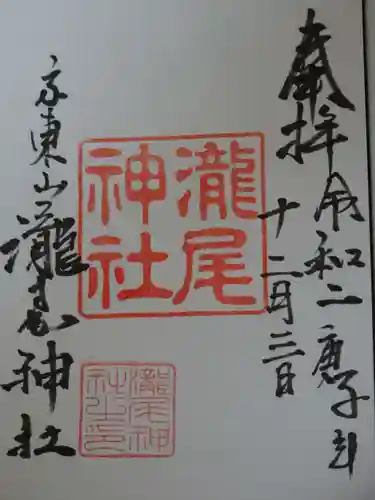 奉拝
令和二庚子年
十二月三日
瀧尾
神社
京東山瀧尾神社
瀧尾神
社之印